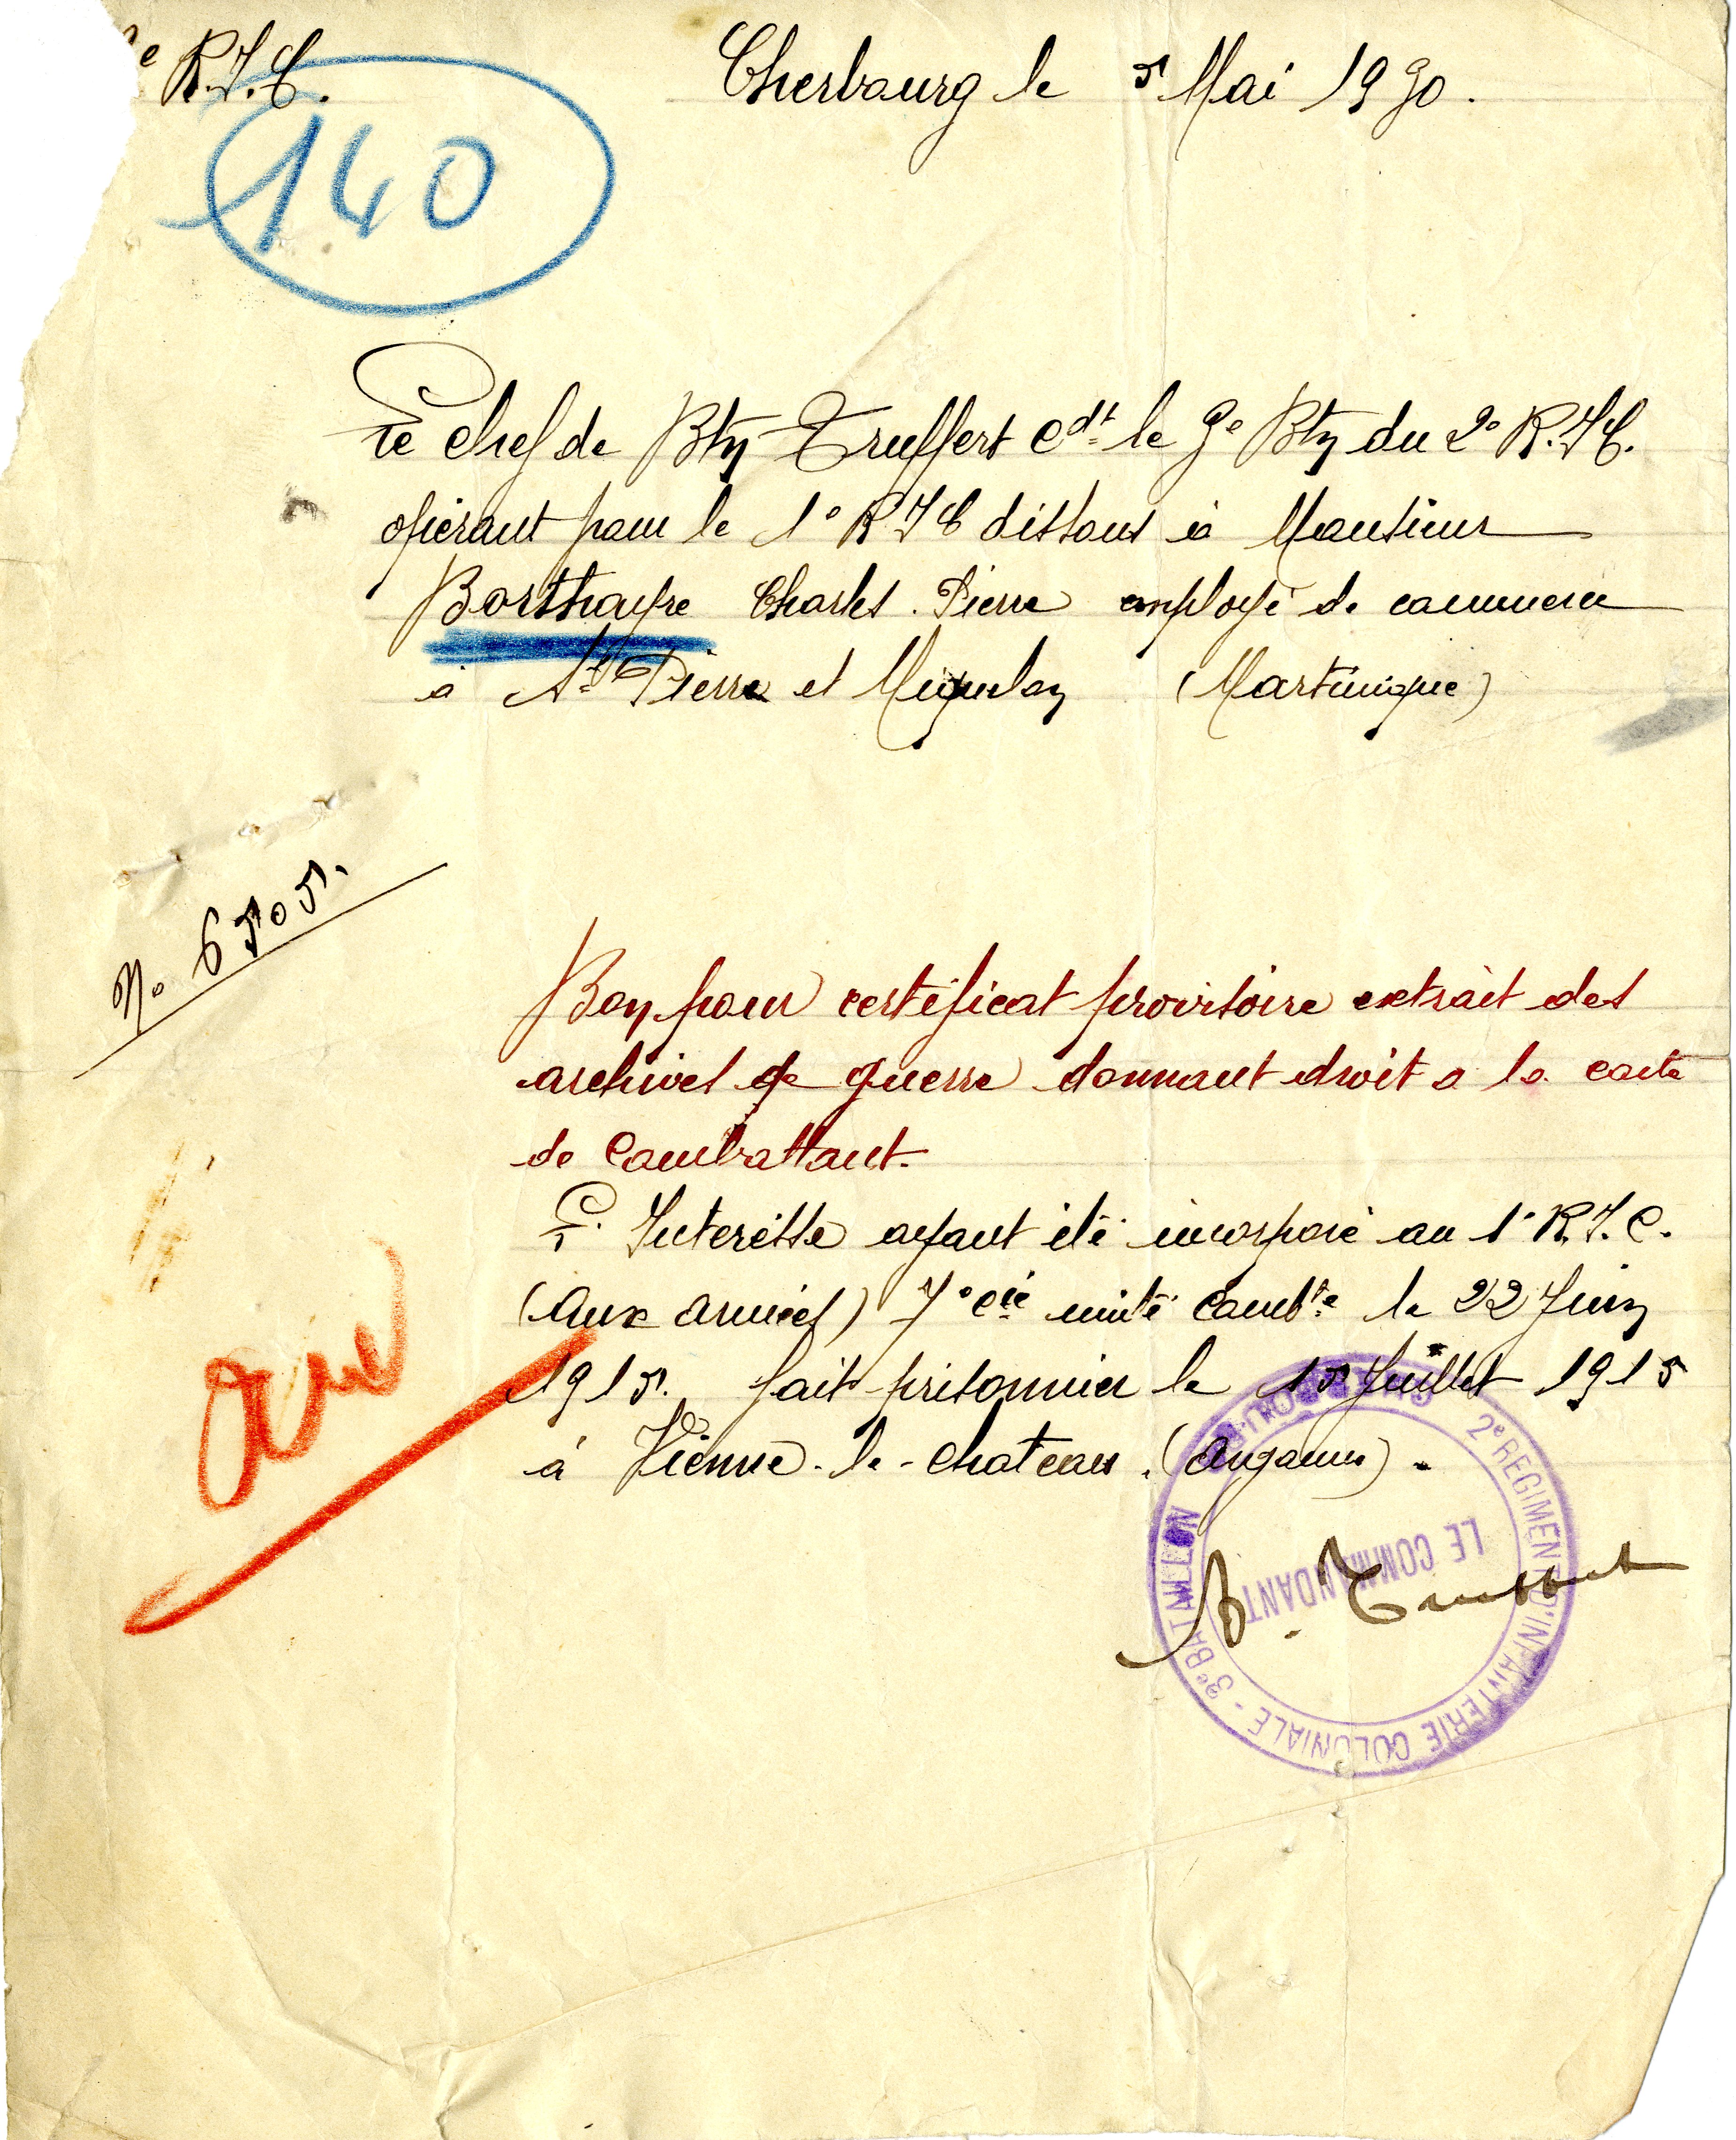 e R.I.C.
Cherbourg le 5 Mai 1930.
140
Le Chef de Btn Truffert Cdt le 3e Btn du 2e R.I.C.
opérant pour le 1e R.I.C dissous à Monsieur
Borthayre Charles. Pierre employé de commerce
à St Pierre et Miquelon (Martinique)
No 6505.
Bon pour certificat provisoire extrait des
archives de guerre donnant droit a la carte
de Combattant.
L'Interessé ayant été incorporé au 1e R.I.C.
(Aux armées) 7e Cie unité Combte le 22 Juin
1915. fait prisonnier le 15 Juillet 1915
à Vienne-le-Chateau. (Argonne).
2e REGIMENT D'INFANTERIE COLONIALE - 3e BATAILLON
LE COMMANDANT
Truffert